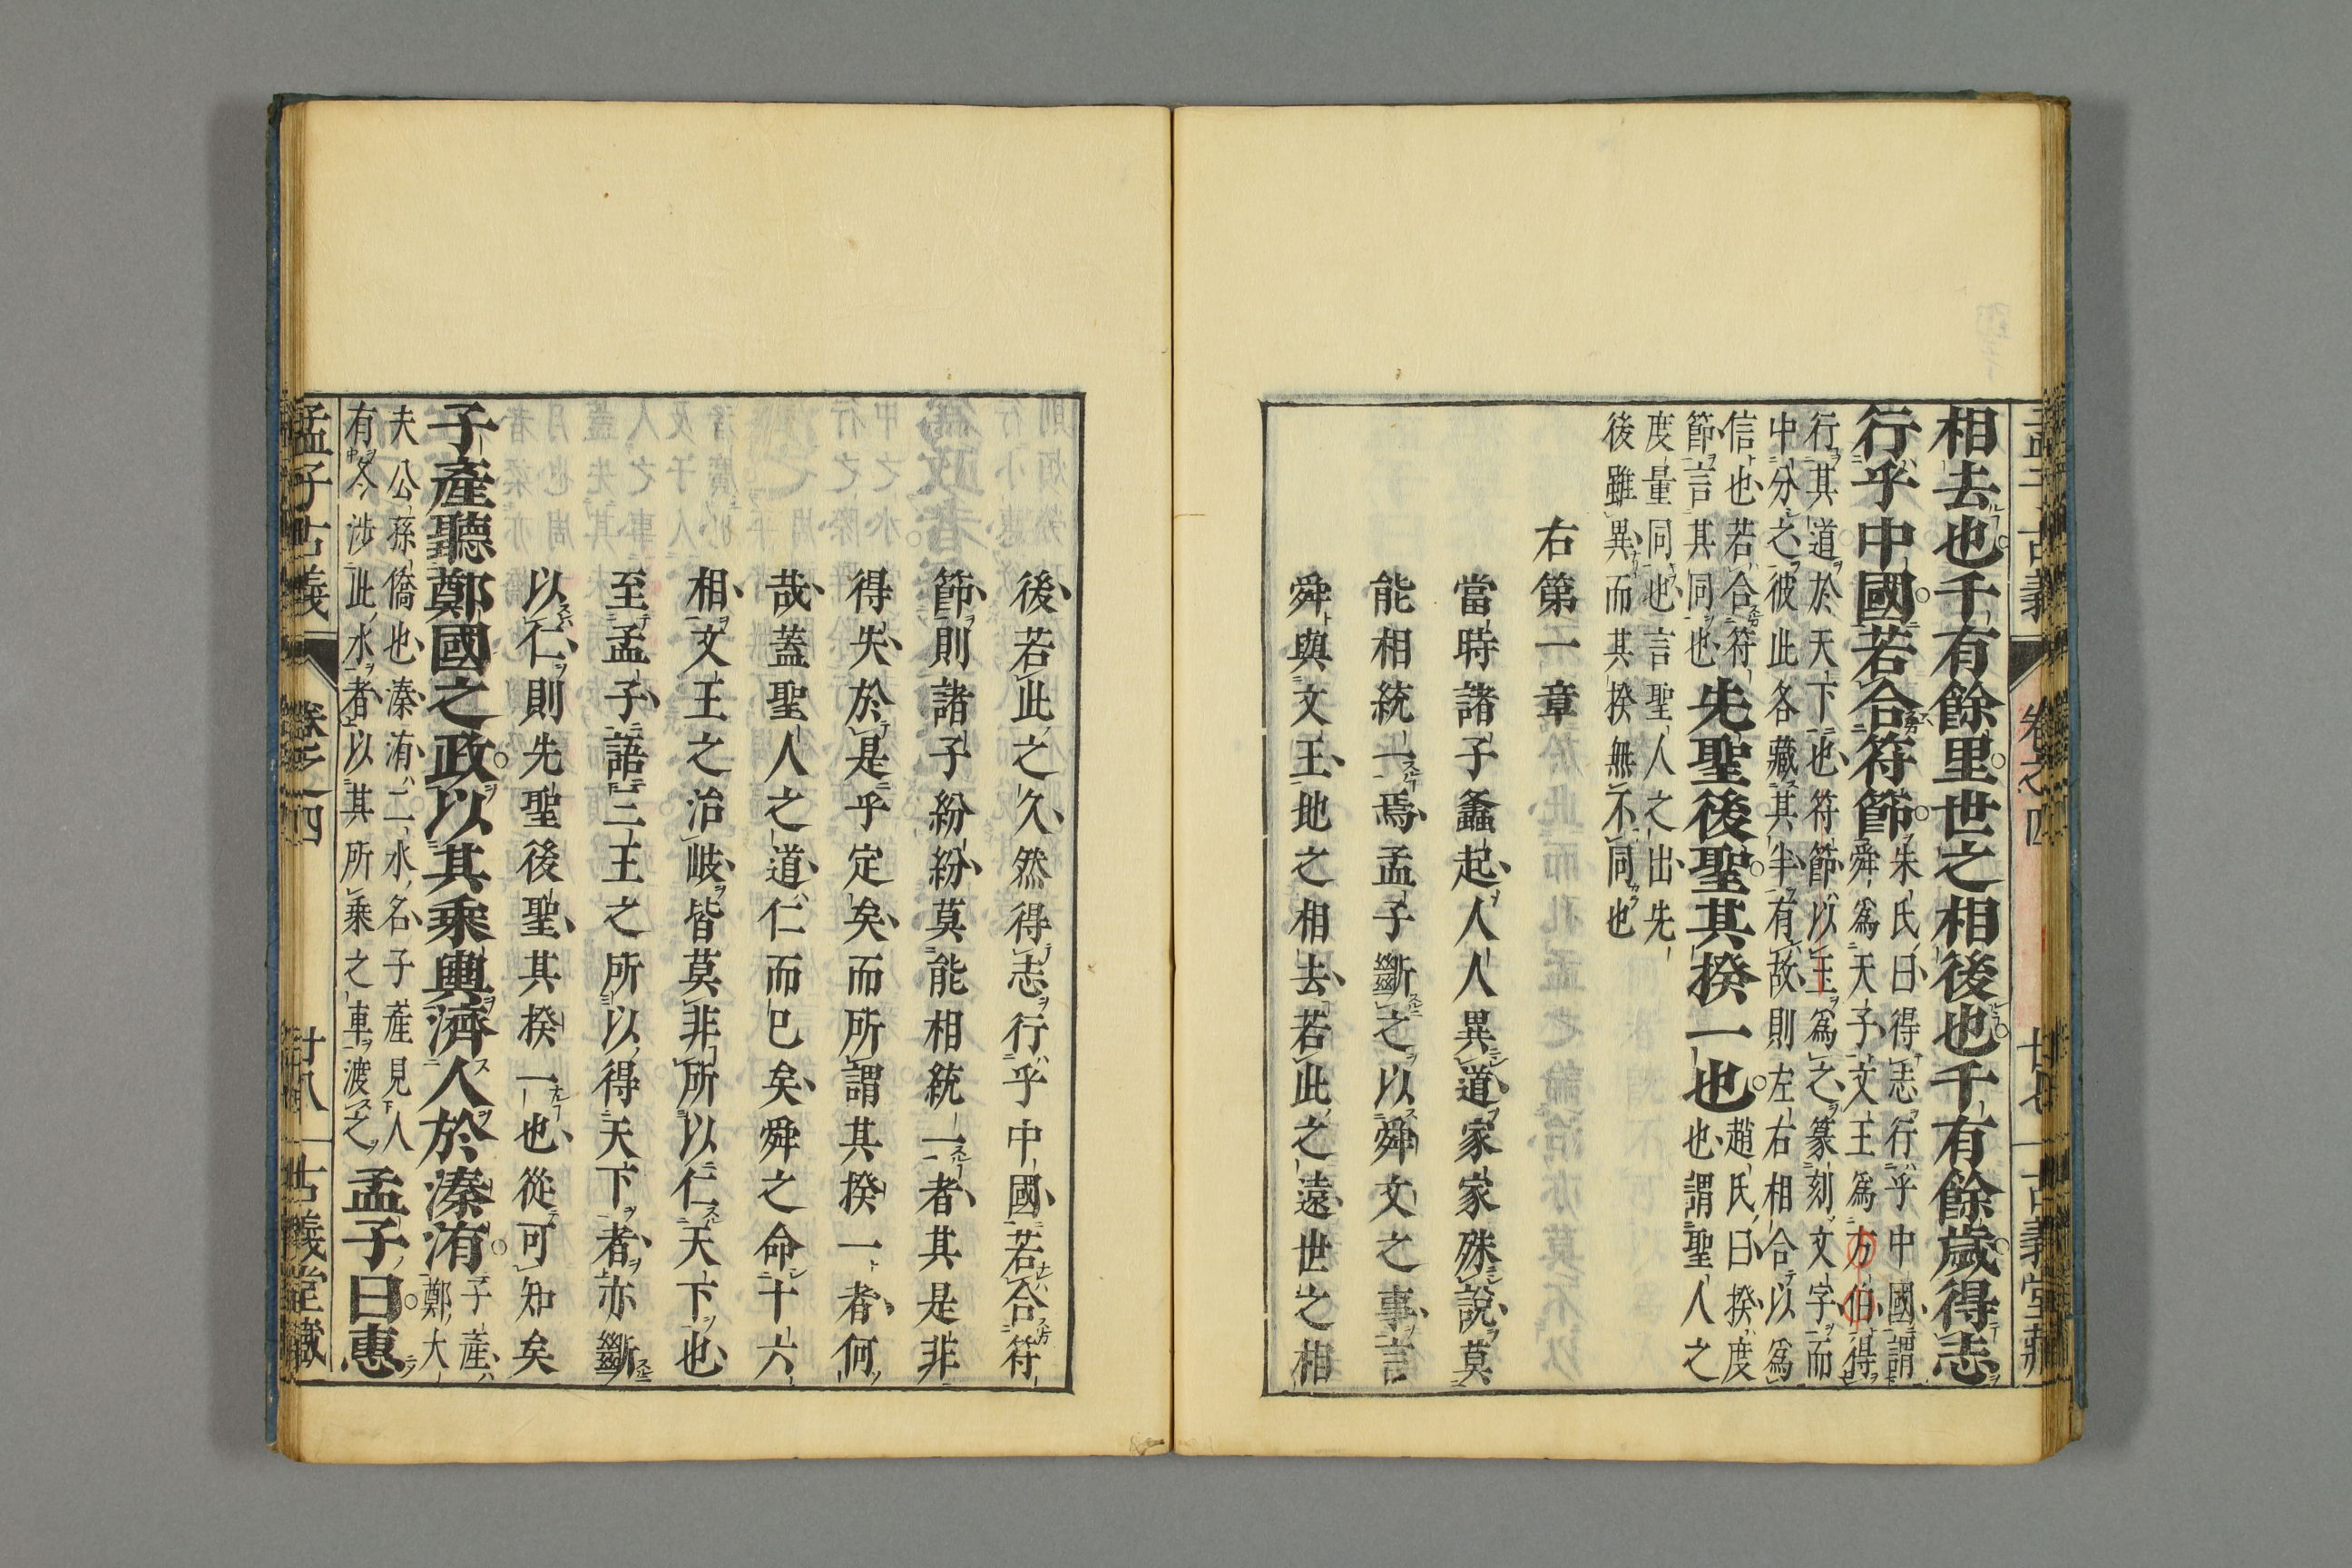 孟子古義 卷之四 廿七 古義堂藏
相去也千有餘里世之相後也千有餘歲得志
行乎中國若合符節
朱氏曰得志行乎中國謂
舜爲天子文王爲方伯得
行其道於天下也符節以玉爲之篆刻文字而
中分之彼此各藏其半有故則左右相合以爲
信也若合符
節言其同也
先聖後聖其揆一也
趙氏曰揆度
也謂聖人之
度量同也言聖人之出先
後雖異而其揆無不同也
右第一章
當時諸子蠭起人人異道家家殊說莫
能相統一焉孟子斷之以舜文之事言
舜與文王地之相去若此之遠世之相
後若此之久然得志行乎中國若合符
節則諸子紛紛莫能相統一者其是非
得失於是乎定矣而所謂其揆一者何
哉蓋聖人之道仁而已矣舜之命十六
相文王之治岐皆莫非所以仁天下也
至孟子語三王之所以得天下者亦斷
以仁則先聖後聖其揆一也從可知矣
子產聽鄭國之政以其乘輿濟人於溱洧
子產
鄭大
夫公孫僑也溱洧二水名子產見人
有冬涉此水者以其所乘之車渡之
孟子曰惠
孟子古義 卷之四 廿八 古義堂藏